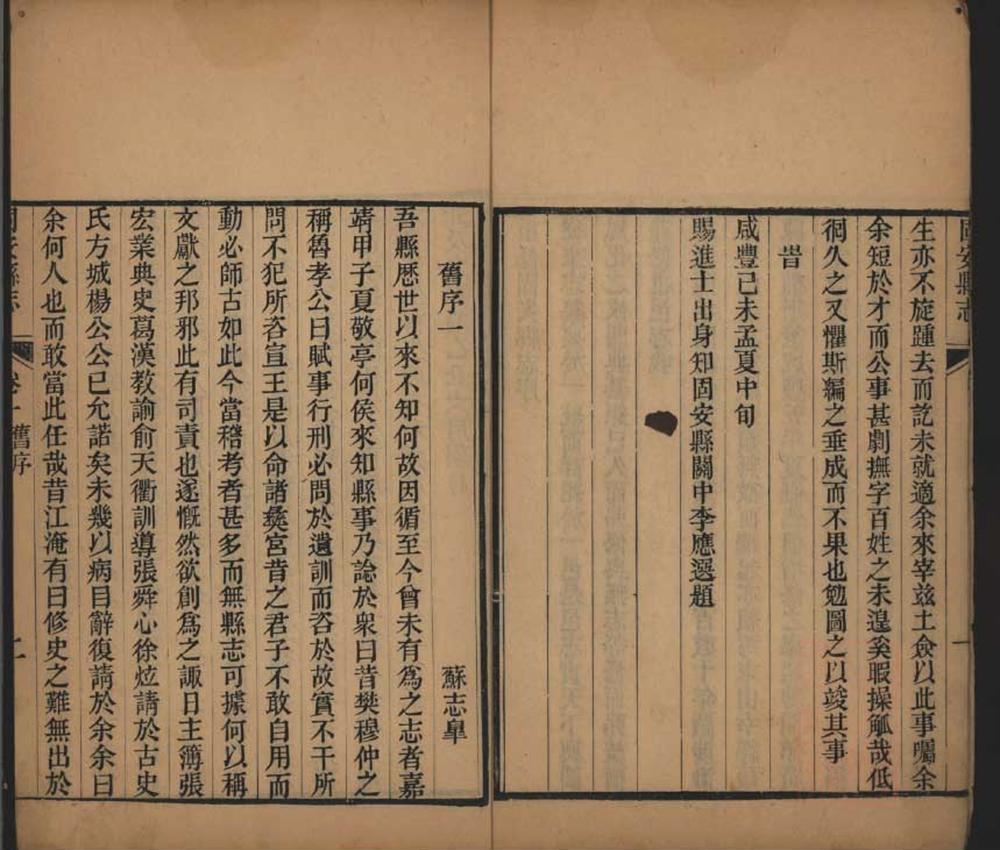 固安縣志
生亦不旋踵去而訖未就適余來宰兹土僉以此事囑余
余短於才而公事甚劇撫字百姓之未遑奚暇操觚哉低
徊久之又懼斯編之垂成而不果也勉圖之以竣其事
旹
咸豐己未孟夏中旬
賜進士出身知固安縣關中李應選題
舊序一
蘇志皐
吾縣歷世以來不知何故因循至今曾未有為之志者嘉
靖甲子夏敬亭何侯來知縣事乃諗於衆曰昔樊穆仲之
稱魯孝公曰賦事行刑必問於遺訓而咨於故實不干所
問不犯所咨宣王是以命諸彝宮昔之君子不敢自用而
動必師古如此今當稽考者甚多而無縣志可據何以稱
文獻之邦邪此有司責也遂慨然欲創為之諏日主簿張
宏業典史葛漢教諭俞天衢訓導張舜心徐炫請於古史
氏方城楊公公已允諾矣未幾以病目辭復請於余余曰
余何人也而敢當此任哉昔江淹有曰修史之難無出於
固安縣志
卷一舊序